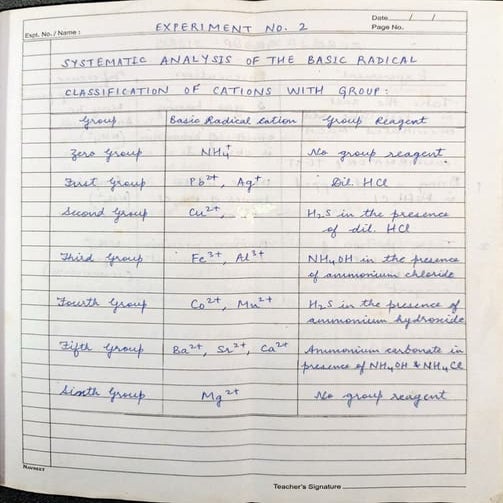 Date / /
Expt. No. / Name :
EXPERIMENT NO. 2
Page No.
SYSTEMATIC ANALYSIS OF THE BASIC RADICAL
CLASSIFICATION OF CATIONS WITH GROUP:
Group Basic Radical Cation Group Reagent
Zero Group NH₄⁺ No group reagent.
First Group Pb²⁺, Ag⁺ Dil. HCl
Second Group Cu²⁺, H₂S in the presence
of dil. HCl
Third Group Fe³⁺, Al³⁺ NH₄OH in the presence
of ammonium chloride
Fourth Group Co²⁺, Mn²⁺ H₂S in the presence of
ammonium hydroxide
Fifth Group Ba²⁺, Sr²⁺, Ca²⁺ Ammonium carbonate in
presence of NH₄OH & NH₄Cl
Sixth Group Mg²⁺ No group reagent
NAVNEET
Teacher's Signature